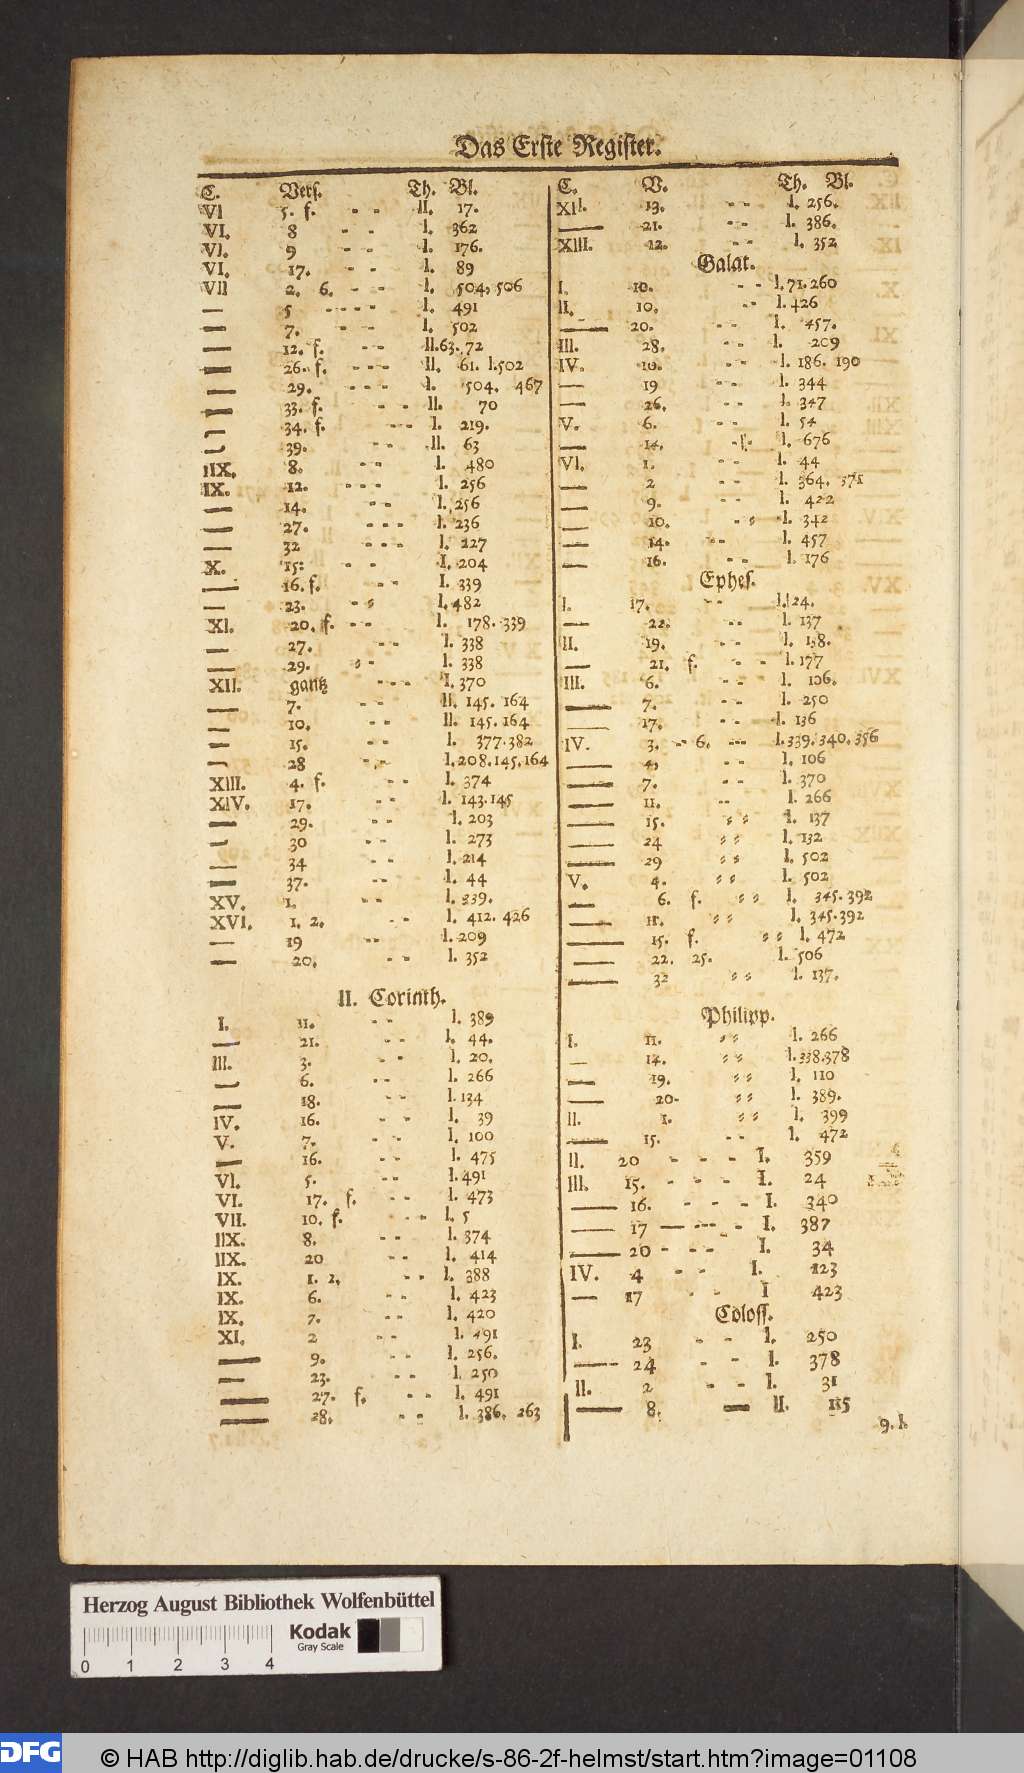 Das Erste Register.
C. Vers. Th. Bl.
VI 5. f. - - II. 17.
VI. 8 - - I. 362
VI. 9 - - I. 176.
VI. 17. - - I. 89
VII 2. 6. - - I. 504, 506
— 5 - - - - I. 491
— 7. - - - I. 502
— 12. f. - - II. 63. 72
— 26. f. - - - II. 61. I. 502
— 29. - - - I. 504. 467
— 33. f. - - II. 70
— 34. f. - - I. 219.
— 39. - - II. 63
IIX. 8. - - I. 480
IX. 12. - - - I. 256
— 14. - - I. 256
— 27. - - - I. 236
— 32 - - - I. 227
X. 15: - - I. 204
— 16. f. - - I. 339
— 23. - - I. 482
XI. 20. f. - - I. 178. 339
— 27. - - I. 338
— 29. - - I. 338
XII. gantz - - - I. 370
— 7. - - II. 145. 164
— 10. - - II. 145. 164
— 15. - - I. 377. 382
— 28 - - I. 208. 145. 164
XIII. 4. f. - - I. 374
XIV. 17. - - I. 143. 145
— 29. - - I. 203
— 30 - - I. 273
— 34 - - I. 214
— 37. - - I. 44
XV. 1. - - I. 339.
XVI. 1. 2. - - I. 412. 426
— 19 - - I. 209
— 20. - - I. 352
II. Corinth.
I. 11. - - I. 389
— 21. - - I. 44.
III. 3. - - I. 20.
— 6. - - I. 266
— 18. I. 134
IV. 16. - - I. 39
V. 7. - - I. 100
— 16. - - I. 475
VI. 5. - - I. 491
VI. 17. f. - - I. 473
VII. 10. f. - - I. 5
IIX. 8. - - I. 374
IIX. 20 - - I. 414
IX. 1. 2. - - I. 388
IX. 6. - - I. 423
IX. 7. - - I. 420
XI. 2 - - I. 491
— 9. - - I. 256.
— 23. - - I. 250
— 27. f. - - I. 491
— 28. - - I. 386. 263
C. V. Th. Bl.
XII. 13. - - I. 256.
— 21. - - I. 386.
XIII. 12. - - I. 352
Galat.
I. 10. - - I. 71. 260
II. 10. - - I. 426
— 20. - - I. 457.
III. 28. - - I. 209
IV. 10. - - I. 186. 190
— 19 - - I. 344
— 26. - - I. 347
V. 6. - - I. 54
— 14. - - I. 676
VI. 1. - - I. 44
— 2 - - I. 364. 371
— 9. - - I. 422
— 10. - - I. 342
— 14. - - I. 457
— 16. - - I. 176
Ephes.
I. 17. - - I. 24.
— 22. - - I. 137
II. 19. - - I. 138.
— 21. f. - - I. 177
III. 6. - - I. 106.
— 7. - - I. 250
— 17. - - I. 136
IV. 3. - 6. - - I. 339. 340. 356
— 4. - - I. 106
— 7. - - I. 370
— 11. - - I. 266
— 15. - - I. 137
— 24 - - I. 132
— 29 - - I. 502
V. 4. - - I. 502
— 6. f. - - I. 345. 392
— 11. - - I. 345. 392
— 15. f. - - I. 472
— 22. 25. I. 506
— 32 - - I. 137.
Philipp.
I. 11. - - I. 266
— 14. - - I. 338. 378
— 19. - - I. 110
— 20- - - I. 389.
II. 1. - - I. 399
— 15. - - I. 472
II. 20 - - - I. 359
III. 15. - - - I. 24
— 16. - - - I. 340
— 17 — - - - I. 387
— 20 - - - I. 34
IV. 4 - - I. 123
— 17 - - I 423
Coloss.
I. 23 - - I. 250
— 24 - - I. 378
II. 2 - - I. 31
— 8. — II. 115
9. I.
Herzog August Bibliothek Wolfenbüttel
Kodak
Gray Scale
0 1 2 3 4
DFG © HAB http://diglib.hab.de/drucke/s-86-2f-helmst/start.htm?image=01108